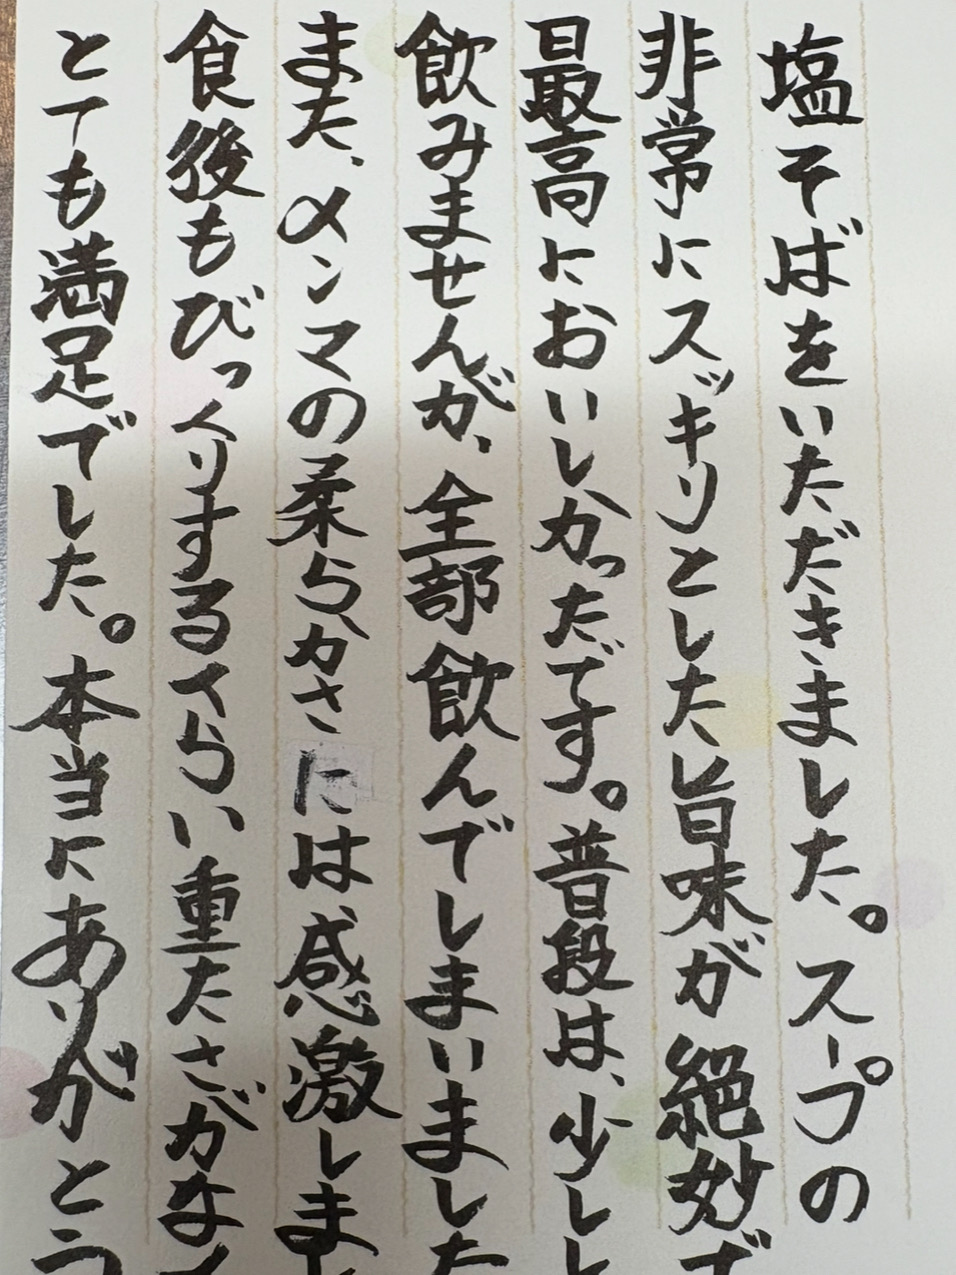 塩そばをいただきました。スープの
非常にスッキリとした旨味が絶妙で
最高においしかったです。普段は、少し
飲みませんが、全部飲んでしまいました
また、メンマの柔らかさには感激しま
食後もびっくりするくらい重たさがな
とても満足でした。本当にありがとう